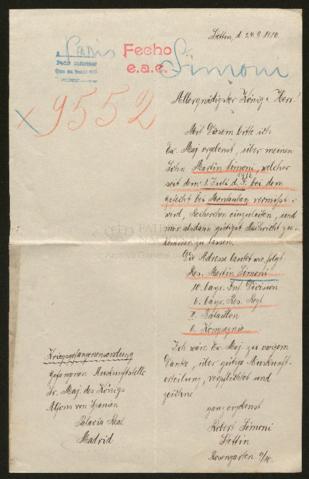 Stettin, d. 24.9.1916.
Paris
Fecho
e.a.e.
Simoni
x9552
Allergnädigster König u. Herr!
Mit Diesem bitte ich
Ew. Maj. ergebenst, über meinen
Sohn Martin Simoni, welcher
seit dem 1. Juli d. J. bei dem
Gefecht bei Montauban vermisst
wird, Recherchen einzuleiten, und
mir alsdann gütigst Nachricht zu-
kommen zu lassen.
Die Adresse lautet wie folgt:
Res. Martin Simoni
10. bayr. Inf. Division
6. bayr. Res. Regt.
2. Bataillon
6. Kompagnie
Ich wäre Ew. Maj. zu ewigem
Danke, über gütige Auskunft-
erteilung, verpflichtet und
zeichne
ganz ergebenst
Robert Simoni
Stettin
Rosengarten
Kriegsgefangenensendung
Gefangenen Auskunftstelle
Sr. Maj. des Königs
Alfons von Spanien
Palacio Real
Madrid